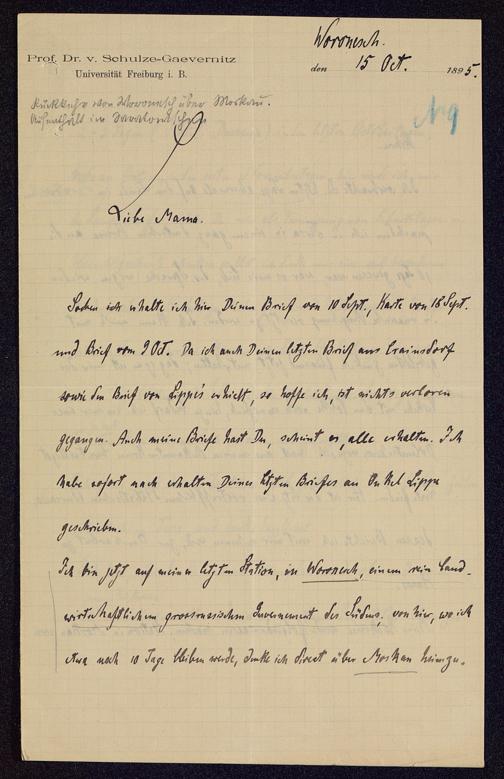 Prof. Dr. v. Schulze-Gaevernitz
Universität Freiburg i. B.
Woronesch.
den 15 Oct. 1895.
Rückkehr von Woronesch über Moskau.
Aufenthalt in
N 9
Liebe Mama.
Soeben erhalte ich hier Deinen Brief von 10 Sept., Karte von 18 Sept.
und Brief vom 9 Oct. Da ich auch Deinen letzten Brief aus Crainsdorf
sowie den Brief von Lippes erhielt, so hoffe ich, ist nichts verloren
gegangen. Auch meine Briefe hast Du, scheint es, alle erhalten. Ich
habe sofort nach erhalten Deines letzten Briefes an Onkel Lippe
geschrieben.
Ich bin jetzt auf meiner letzten Station, in Woronesch, einem rein land-
wirtschaftlichem grossrussischem Guvernement des Südens, von hier, wo ich
etwa noch 10 Tage bleiben werde, denke ich direct über Moskau heimzu-